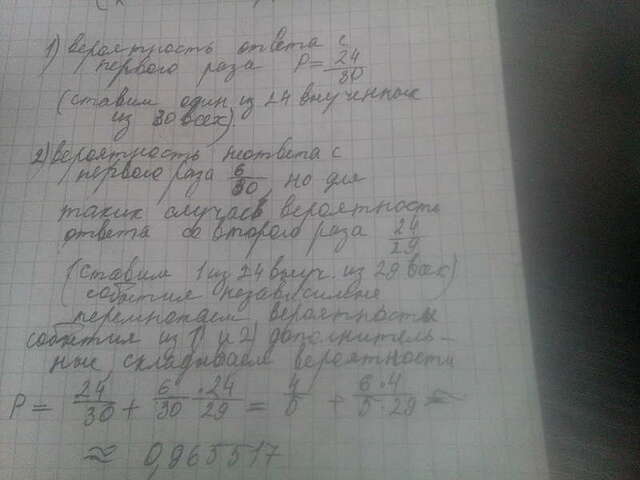 1) вероятность ответа с
первого раза P = 24/30
(ставим один из 24 выученных
из 30 всех)
2) вероятность неответа с
первого раза 6/30, но для
таких случаев вероятность
ответа со второго раза 24/29
(ставим 1 из 24 выуч. из 29 всех)
события независимые
перемножаем вероятности
события из 1) и 2) дополнитель-
ные, складываем вероятности
P = 24/30 + 6/30 · 24/29 = 4/5 + 6·4/5·29 ≈
≈ 0,965517